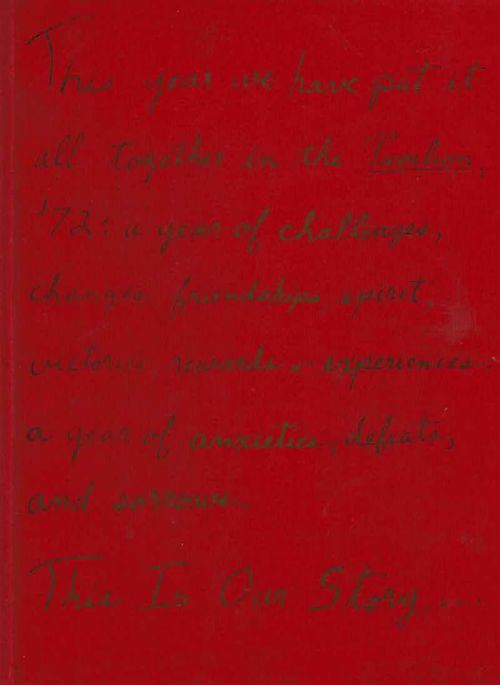 This year we have put it
all together in the Pavilion,
'72: a year of challenges,
changes, friendships, spirit,
victories, rewards & experiences:
a year of anxieties, defeats,
and sorrows.
This Is Our Story ...